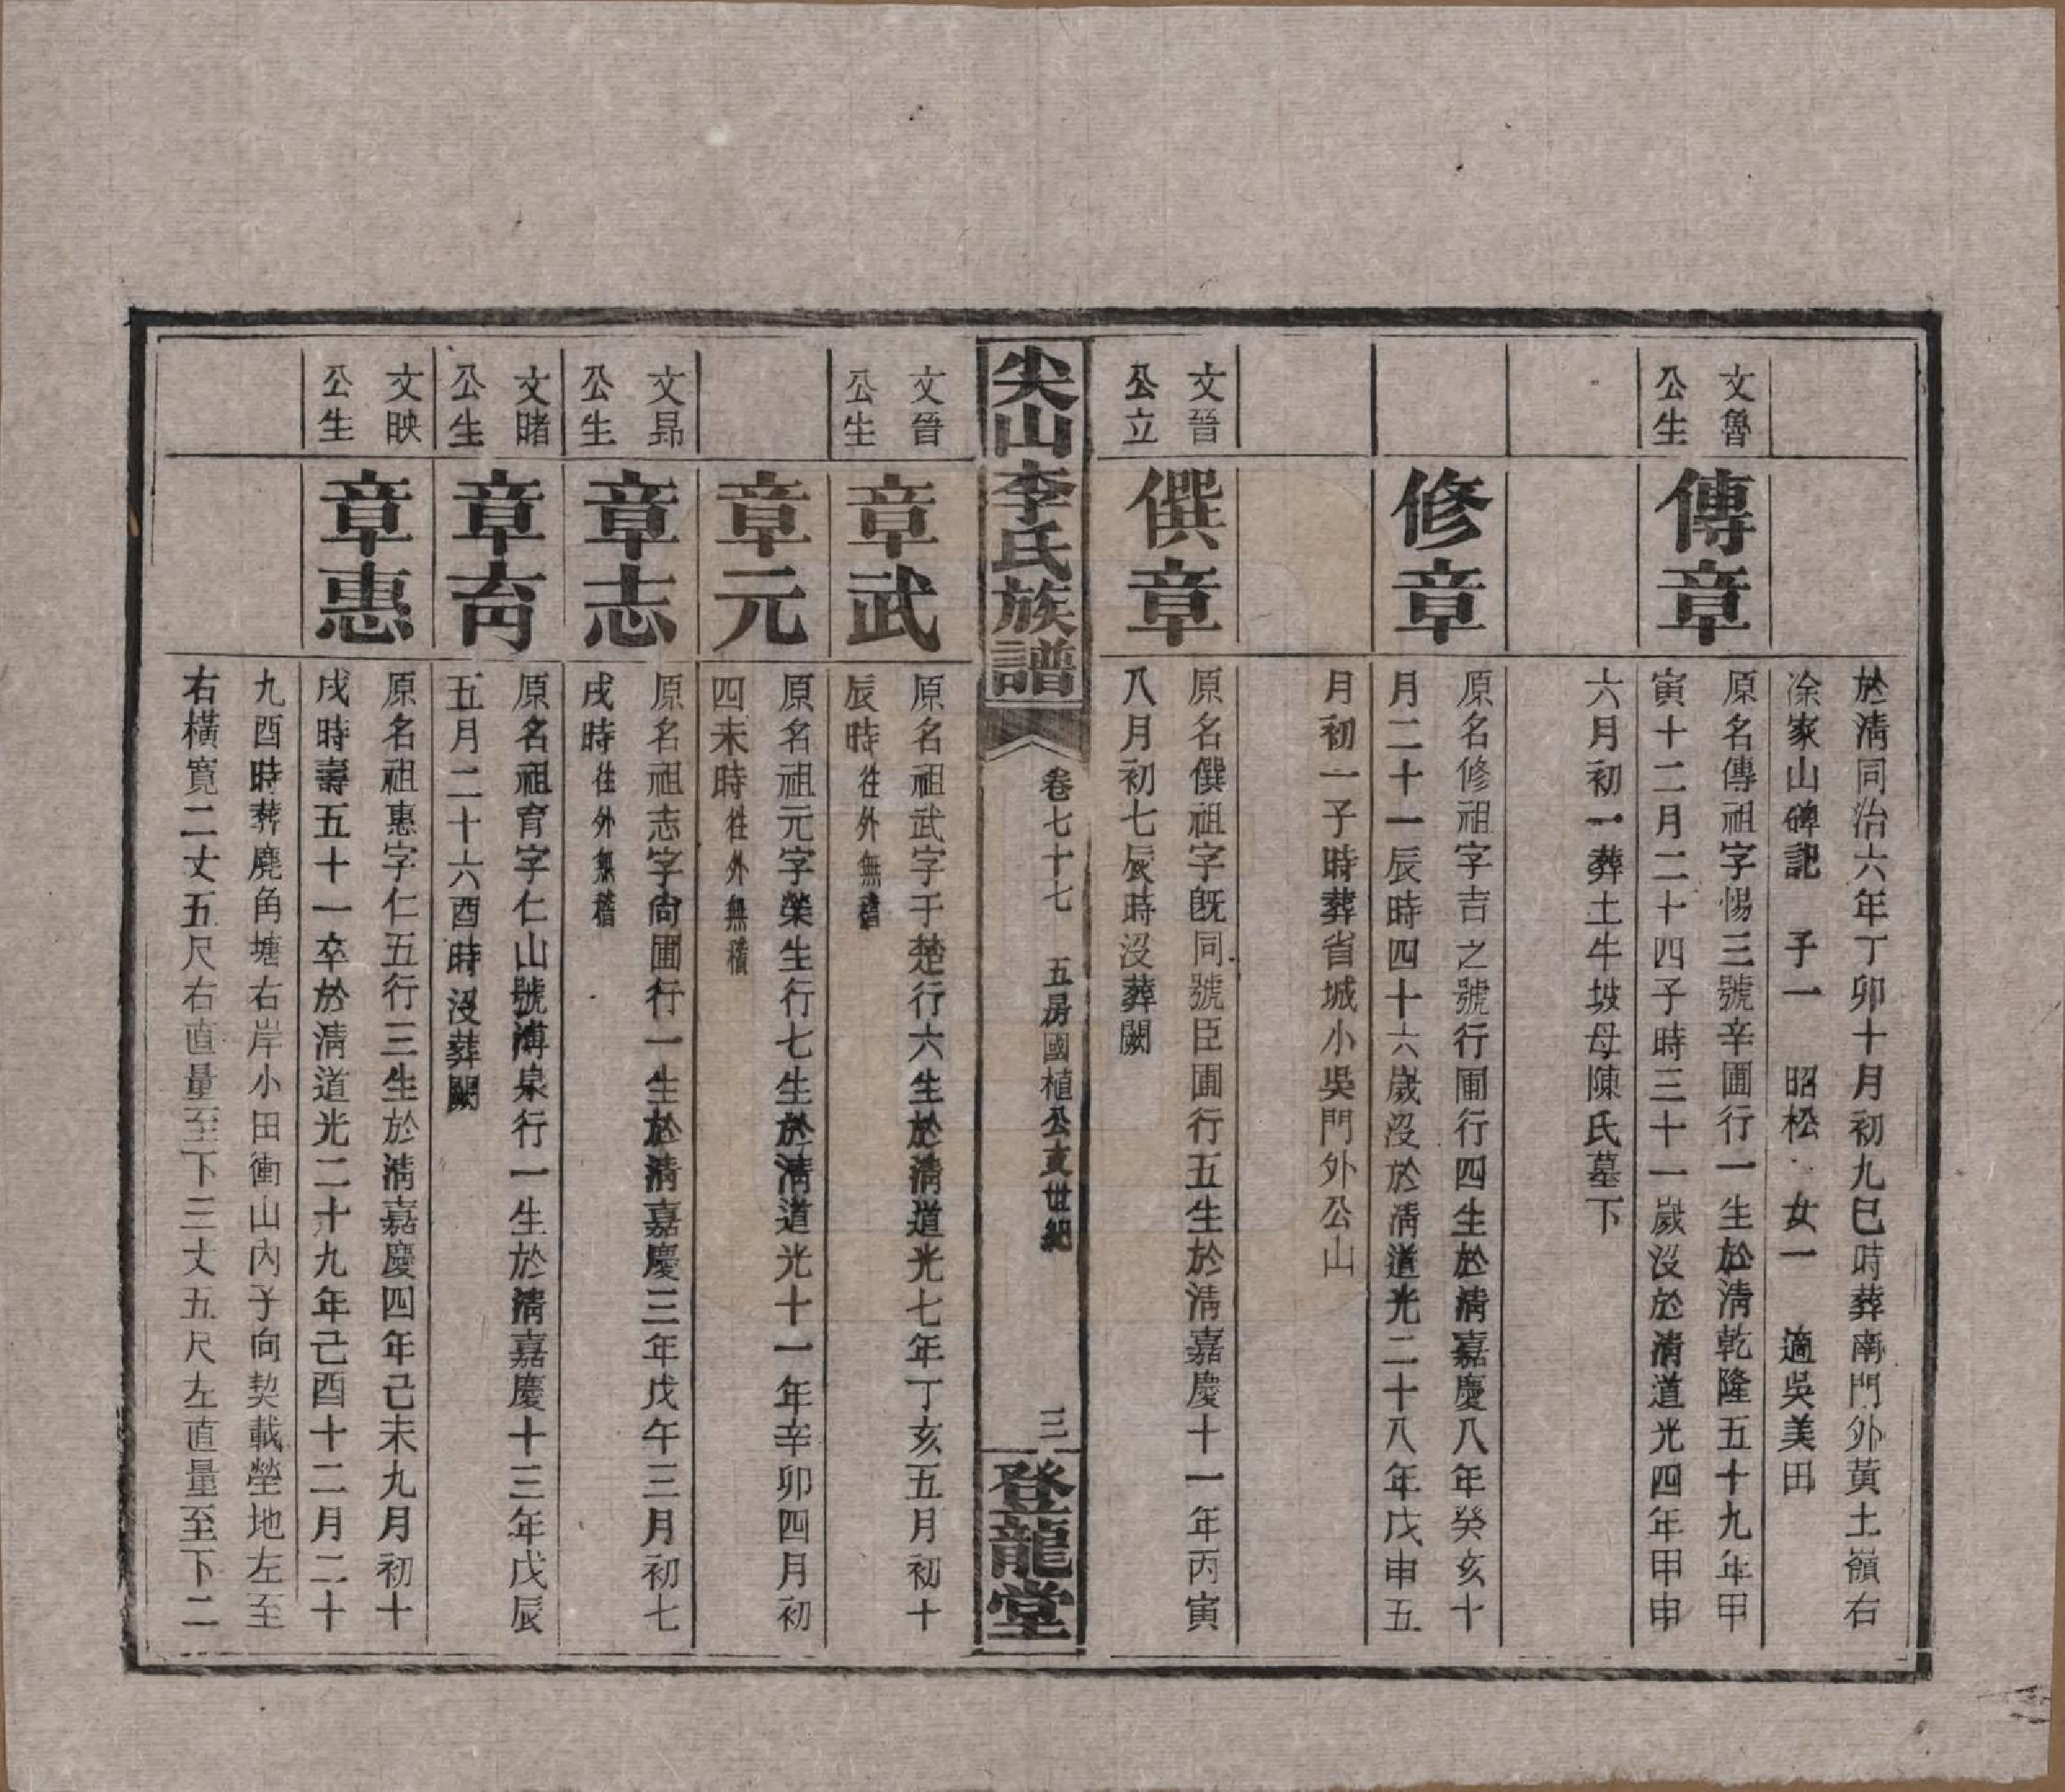 於淸同治六年丁卯十月初九巳時葬南門外黃土嶺右
凃家山碑記　子一　昭松　女一　適吳美田
文魯
公生
傳章
原名傳祖字惕三號辛圃行一生於淸乾隆五十九年甲
寅十二月二十四子時三十一歲沒於淸道光四年甲申
六月初一葬土牛坡母陳氏墓下
修章
原名修祖字吉之號行圃行四生於淸嘉慶八年癸亥十
月二十一辰時四十六歲沒於淸道光二十八年戊申五
月初一子時葬省城小吳門外公山
文晉
公立
僎章
原名僎祖字旣同號臣圃行五生於淸嘉慶十一年丙寅
八月初七辰時沒葬闕
尖山李氏族譜
卷七十七　五房國植公支世紀
三
登龍堂
文晉
公生
章武
原名祖武字于楚行六生於淸道光七年丁亥五月初十
辰時往外無稽
章元
原名祖元字榮生行七生於淸道光十一年辛卯四月初
四未時往外無稽
文昴
公生
章志
原名祖志字尙圃行一生於淸嘉慶三年戊午三月初七
戌時往外無稽
文睹
公生
章育
原名祖育字仁山號溥泉行一生於淸嘉慶十三年戊辰
五月二十六酉時沒葬闕
文映
公生
章惠
原名祖惠字仁五行三生於淸嘉慶四年己未九月初十
戌時壽五十一卒於淸道光二十九年己酉十二月二十
九酉時葬鹿角塘右岸小田衝山內子向契載塋地左至
右橫寬二丈五尺右直量至下三丈五尺左直量至下二